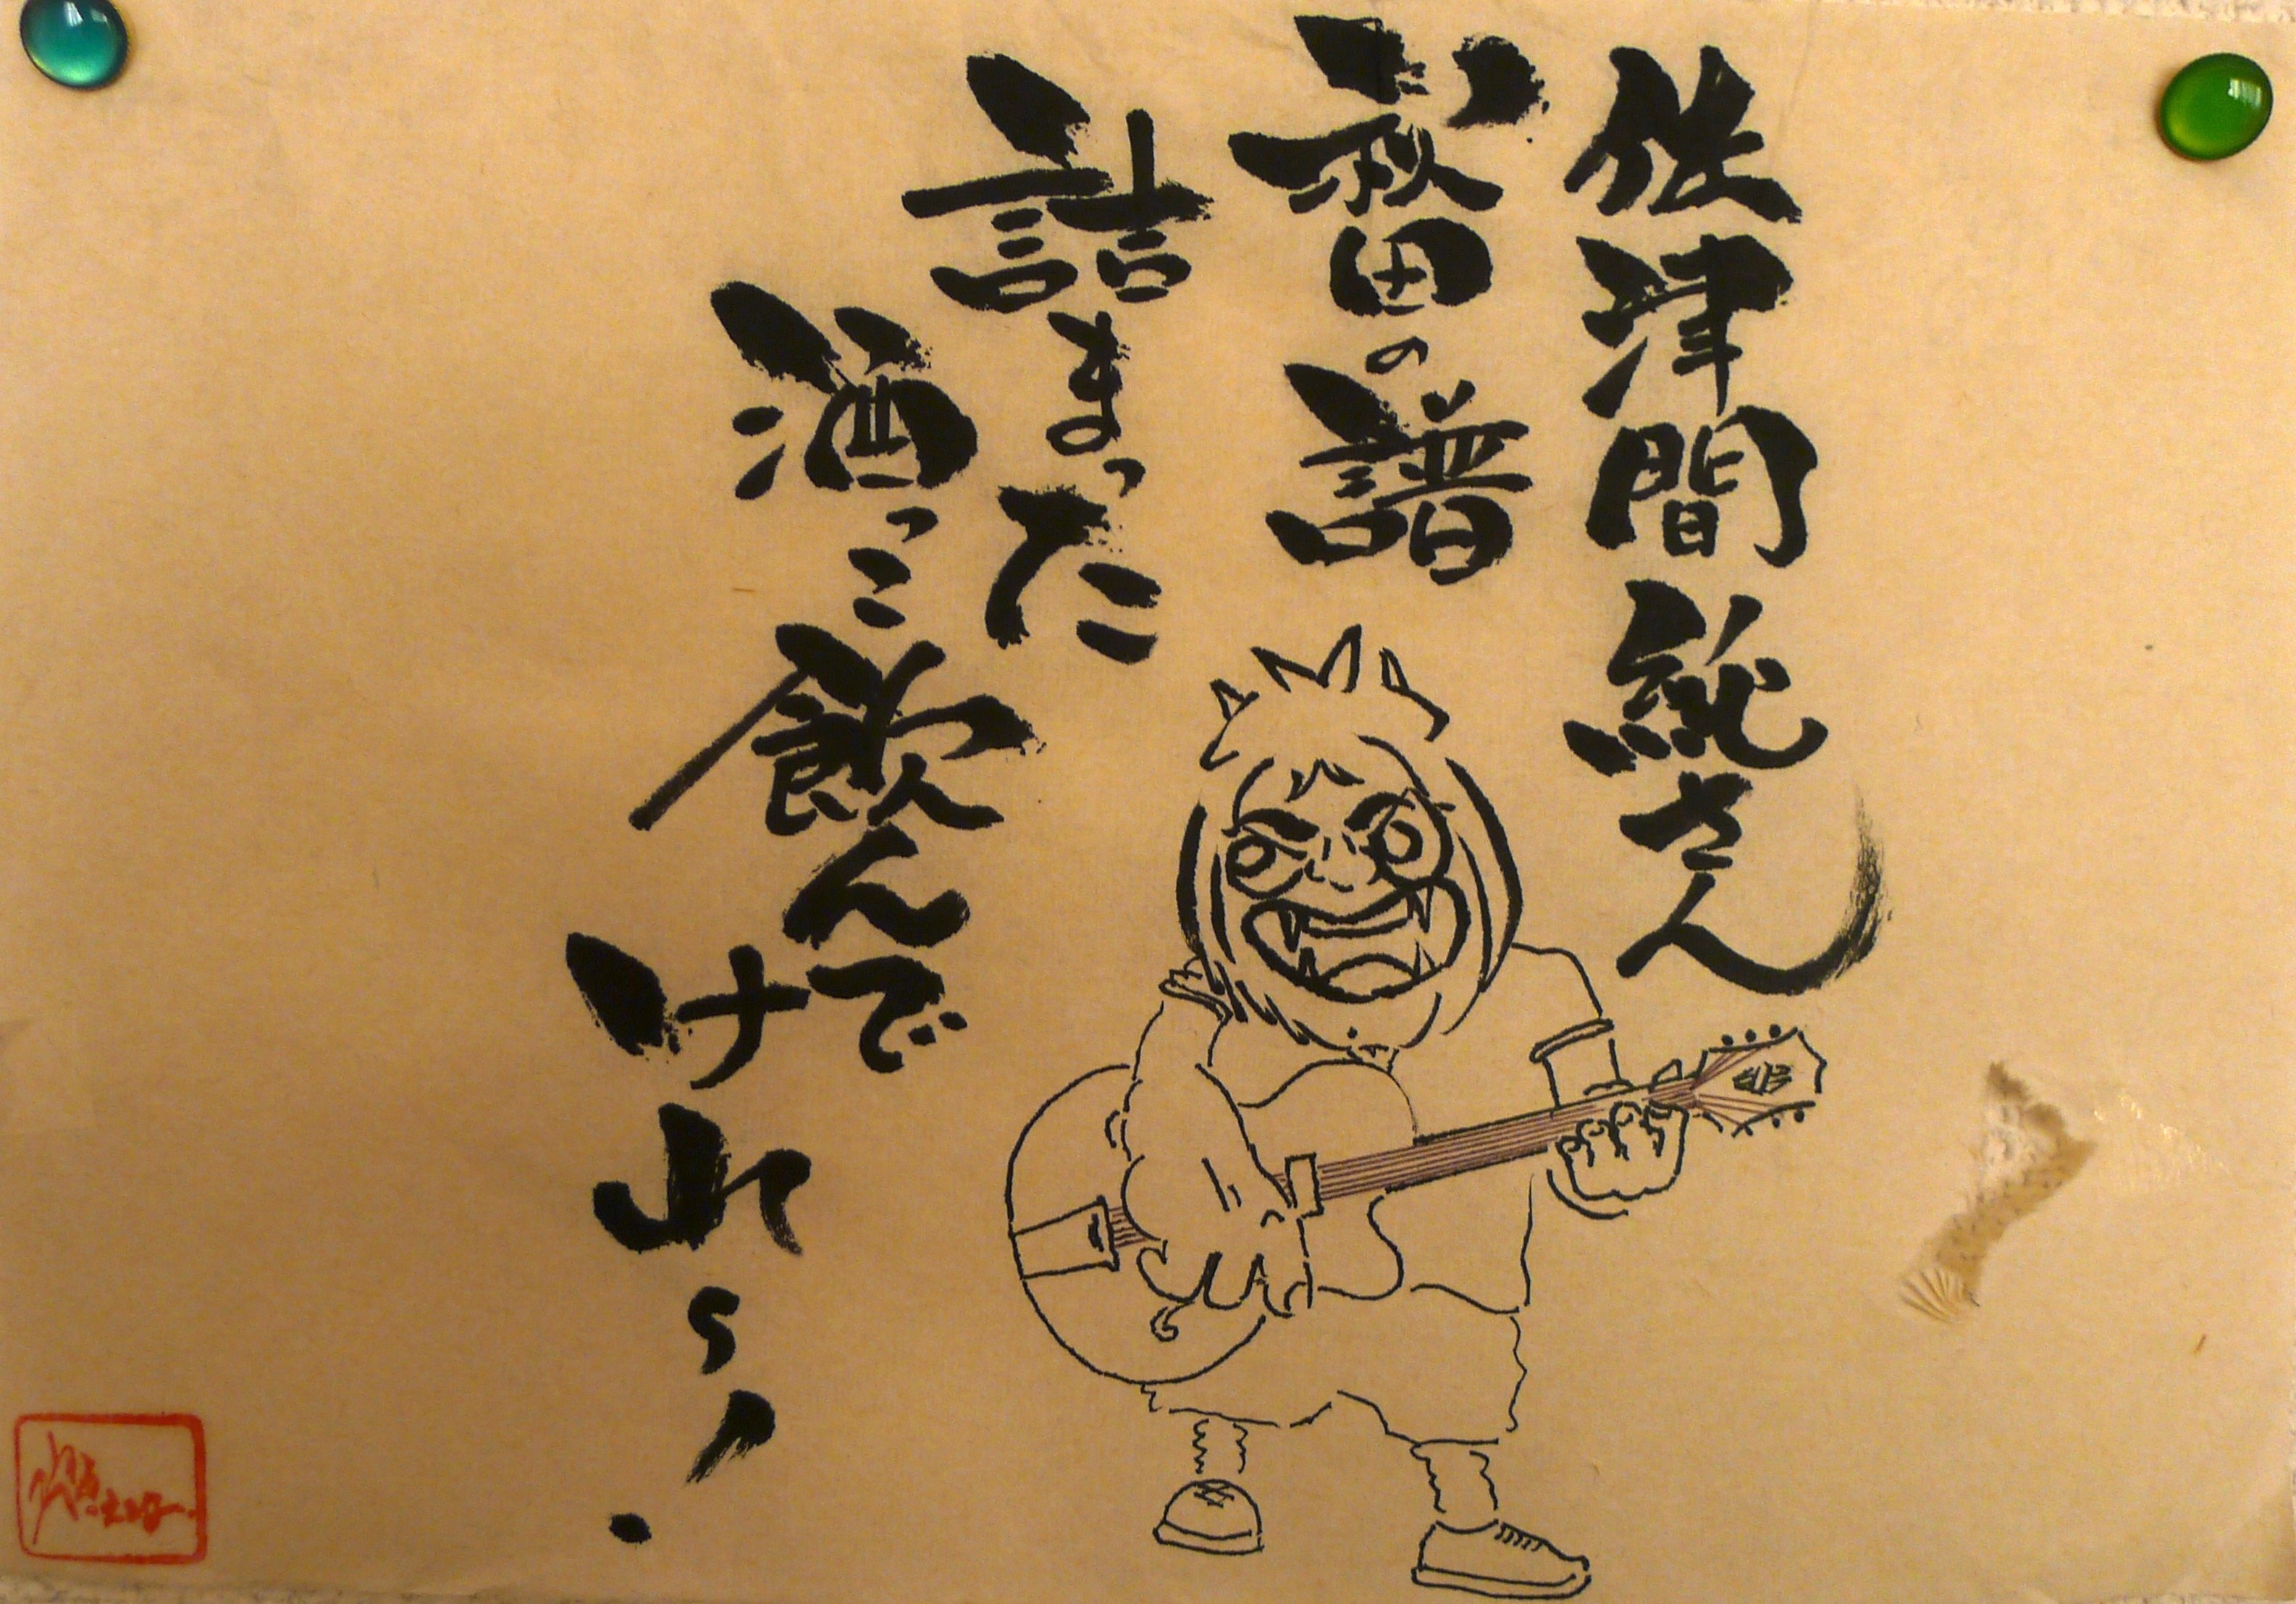 佐津間純さん
秋田の譜
詰まった
酒っこ飲んで
けれ〜！